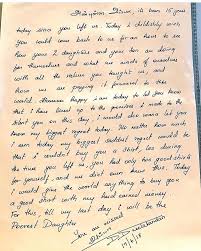 its been 15 years
today since you left us. Today I childishly wish
you could come back to us for an hour to see
how your 2 daughters and your son are doing
for themselves and what we made of ourselves
with all the values you taught us and
those we are passing it forward to the
world. Bemused happy I am today to let you know
that I have lived up to the promises I made to the
that you on this day, I would also wanna let you
know my biggest regret today. No matter how much
I earn today my biggest saddest regret would be
that I couldn't buy you a shirt, less during
the time you left us, you had only two good shirts
for yourself, and we dint even know this. Today
I would give the world any thing to buy you
a good shirt with my hard earned money
For this, till my last day I will be the
Poorest Daughter
You are missed